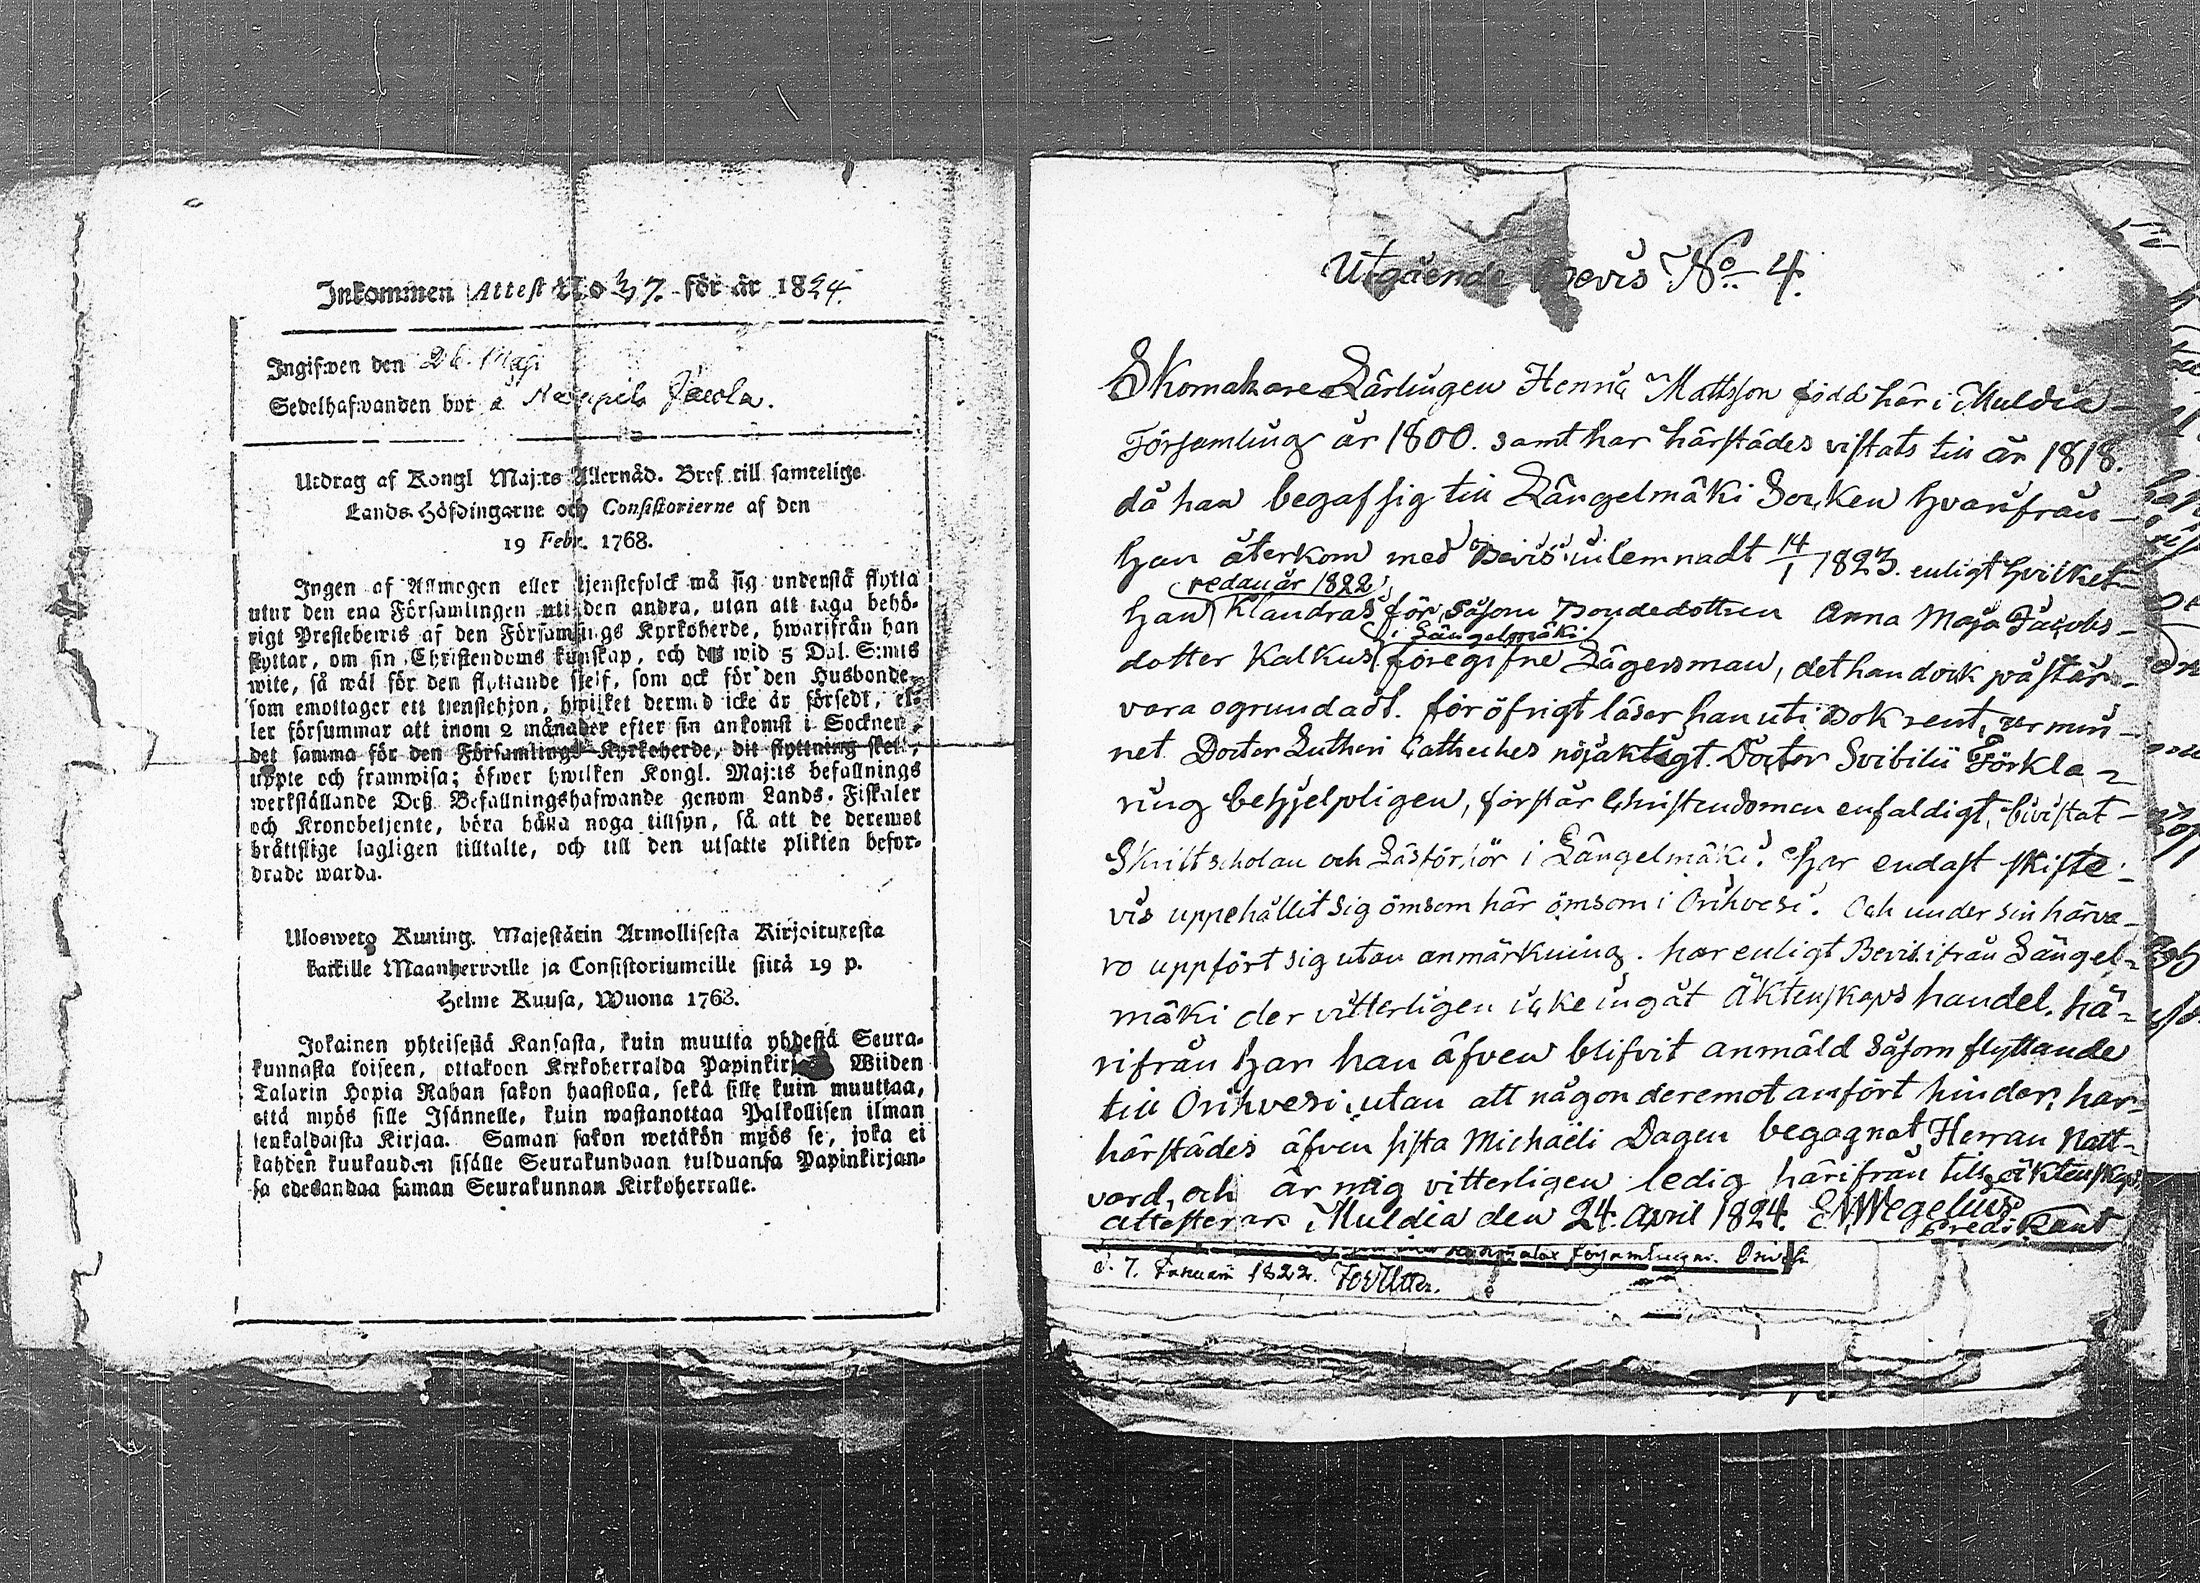 Inkommen Attest No 37. för år 1824.
Ingifwen den 26 Maji
Sedelhafwanden bor å Jaeola.
Utdrag af Kongl Maj:ts Allernåd. Bref till samtelige
Lands-Höfdingarne och Consistorierne af den
19 Febr. 1768.
Ingen af Allmogen eller tjenstefolck må sig understå flytta
utur den ena Församlingen uti den andra, utan att taga behö-
rigt Prestebewis af den Församlings Kyrkoherde, hwarifrån han
flyttar, om sin Christendoms kunskap, och det wid 5 Dal. S:mts
wite, så wäl för den flyttande sjelf, som ock för den Husbonde,
som emottager ett tjenstehjon, hwilket dermed icke är försedt, el-
ler försummar att inom 2 månader efter sin ankomst i Socknen,
det samma för den Församlings Kyrkoherde, dit flyttning skett,
uppte och framwisa; öfwer hwilken Kongl. Maj:ts befallnings
werkställande Deß Befallningshafwande genom Lands-Fiskaler
och Kronobetjente, böra hålla noga tillsyn, så att de deremot
bråttslige lagligen tilltalte, och till den utsatte plikten befor-
drade warda.
Uloswetg Kuning. Majestätin Armollisesta Kirjoituxesta
kaikille Maanherroille ja Consistoriumeille siitä 19 p.
Helme Kuusa, Wuona 1768.
Jokainen yhteisestä Kansasta, kuin muutta yhdestä Seura-
kunnasta toiseen, ottakoon Kirkoherralda Papinkir Wiiden
Talarin Hopia Rahan sakon haastolla, sekä sille kuin muuttaa,
että myös sille Isännelle, kuin wastanottaa Palkollisen ilman
senkaldaista Kirjaa. Saman sakon wetäkön myös se, joka ei
kahden kuukauden sisälle Seurakundaan tulduansa Papinkirjan-
sa edesandaa saman Seurakunnan Kirkoherralle.
Utgående Bevis No 4.
Skomakare Lärlingen Henric Mattsson född här i Muldia
Församling år 1800. samt har härstädes vistats till år 1818.
då han begaf sig till Längelmäki Socken hvarifrån
han återkom med Bevis utlemnadt 14/1 1823. enligt hvilket
redan år 1822
han klandras för såsom Bondedottren Anna Maja Jacobs-
i Längelmäki
dotter Kalkus föregifne Lägersman, det han dock påstår
vara ogrundadt. för öfrigt läser han uti Bok rent, ur min-
net Doctor Lutheri Catheches nöjaktigt. Doctor Svibilii Förkla-
ring behjelpligen, förstår Christendomen enfaldigt, bivistat
Skriftscholan och Läsförhör i Längelmäki. har endast skifte-
vis uppehållit sig ömsom här ömsom i Orihvesi. Och under sin härva-
ro uppfört sig utan anmärkning. har enligt Bevis ifrån Längel-
mäki der vitterligen icke ingåt Äktenskaps handel. hä-
rifrån har han äfven blifvit anmäld såsom flyttande
till Orihvesi utan att någon deremot anfört hinder, har
härstädes äfven sista Michaëli Dagen begagnat Herran Natt-
vard, och är mig vitterligen ledig härifrån till äktenskap,
attesterars Muldia den 24. April 1824. E Wegelius
Predikant
församlingar. Orivesi
d. 7. Januarii 1822.